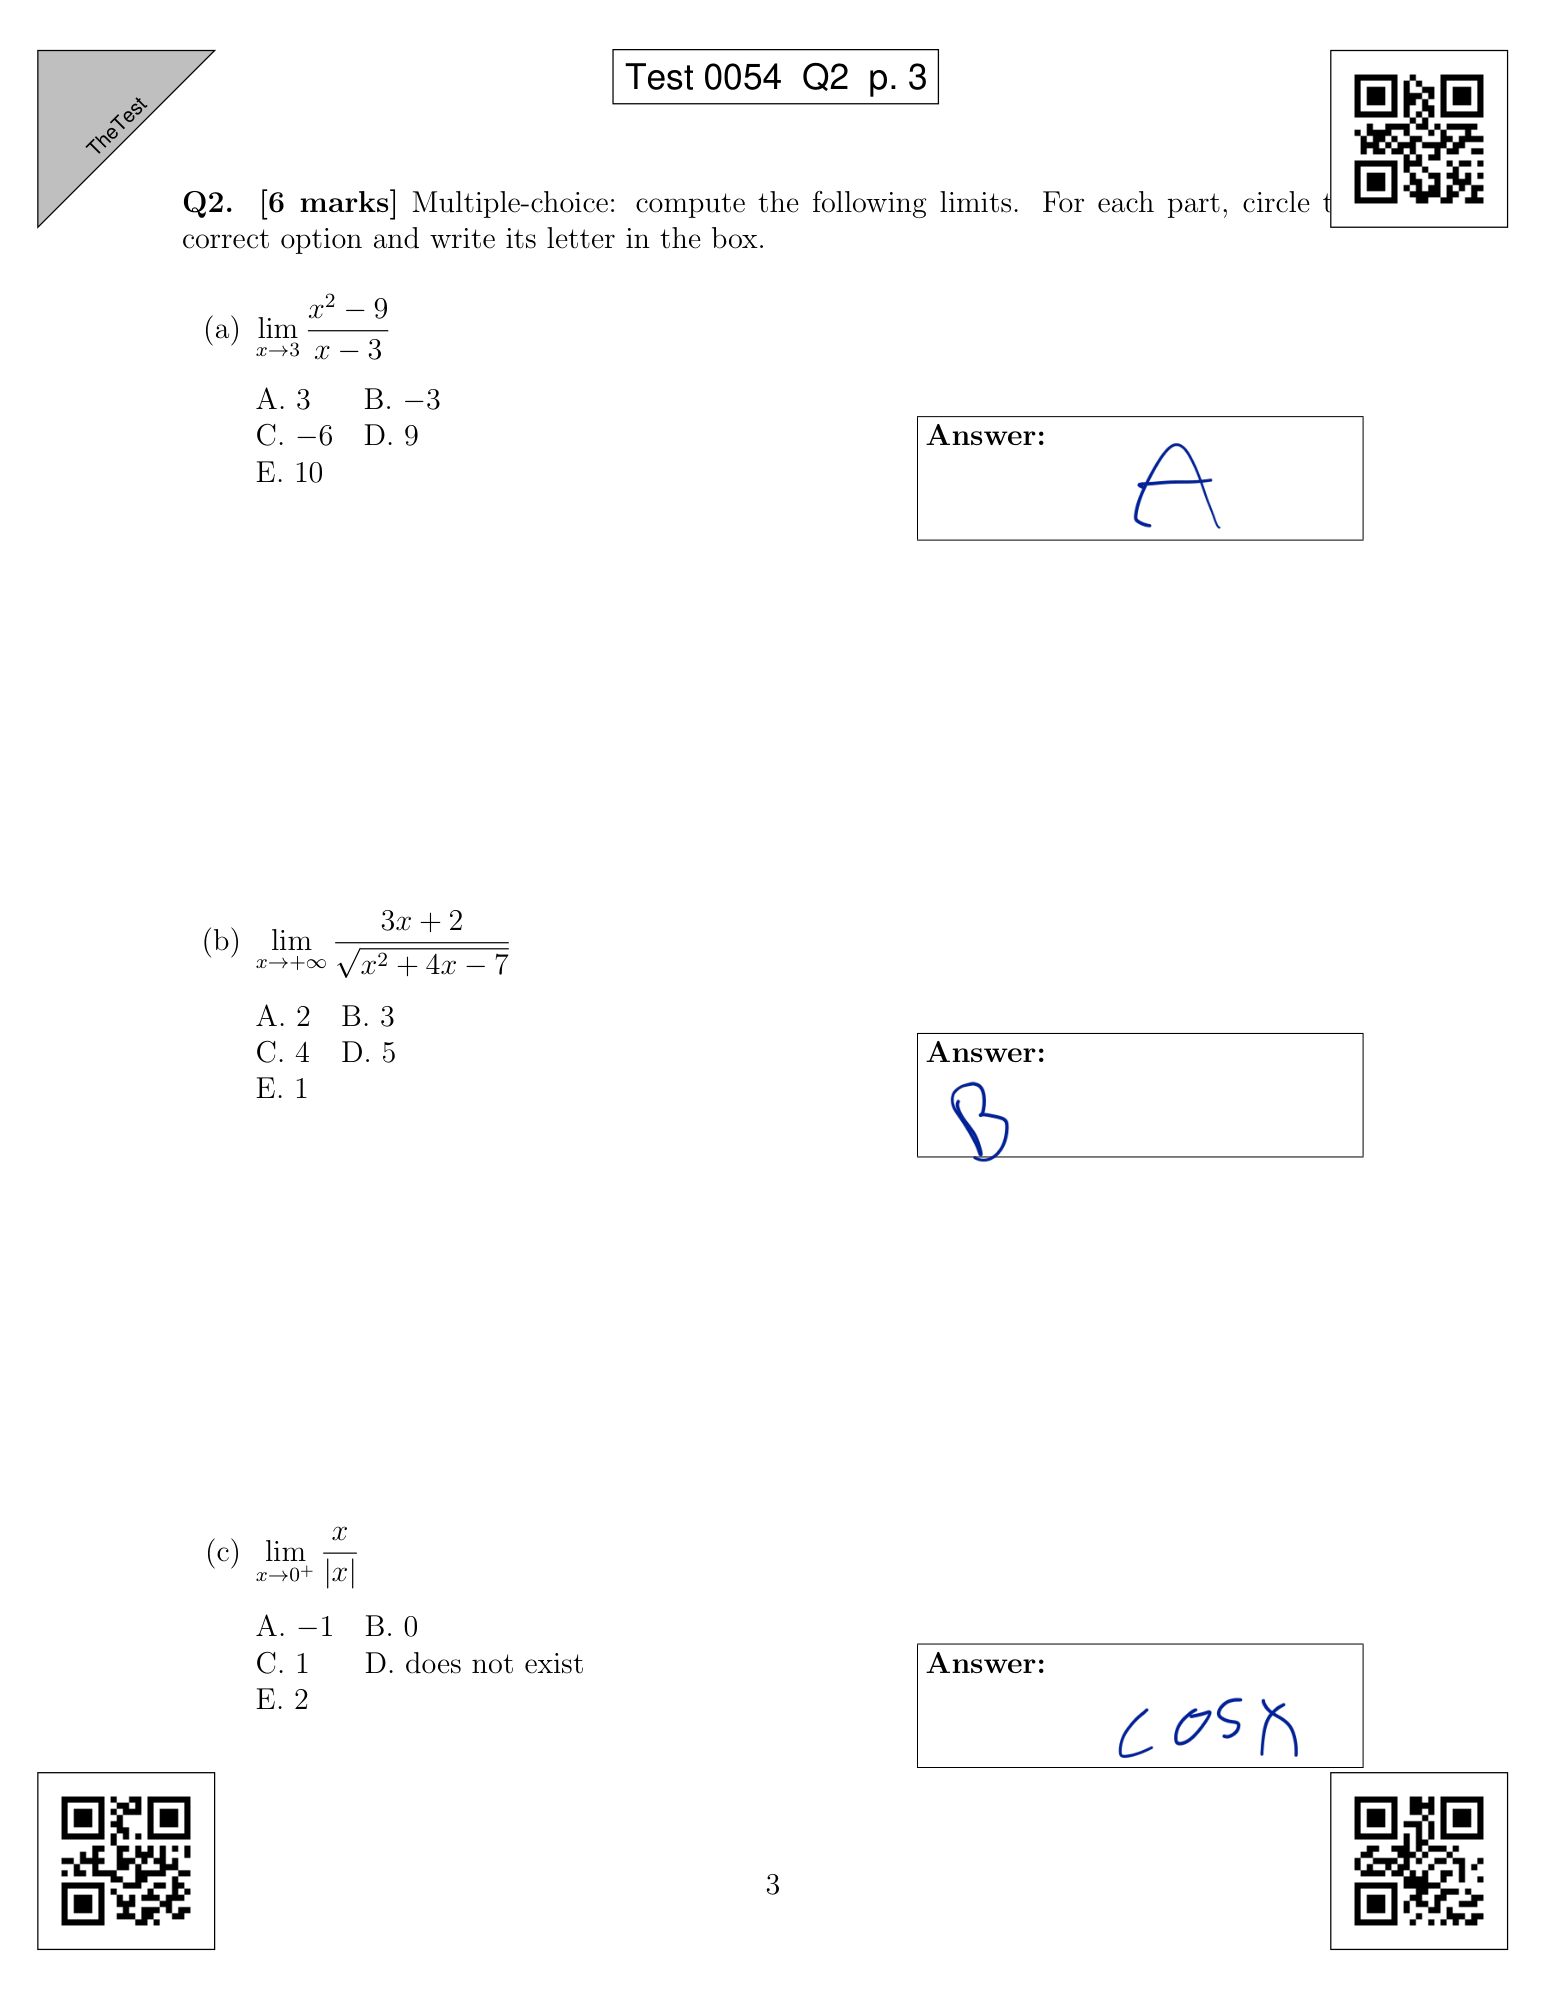 TheTest
Test 0054 Q2 p. 3
Q2. [6 marks] Multiple-choice: compute the following limits. For each part, circle t
correct option and write its letter in the box.
(a) lim x→3 (x² − 9)/(x − 3)
A. 3 B. −3
C. −6 D. 9
E. 10
Answer:
A
(b) lim x→+∞ (3x + 2)/√(x² + 4x − 7)
A. 2 B. 3
C. 4 D. 5
E. 1
Answer:
B
(c) lim x→0⁺ x/|x|
A. −1 B. 0
C. 1 D. does not exist
E. 2
Answer:
cosx
3